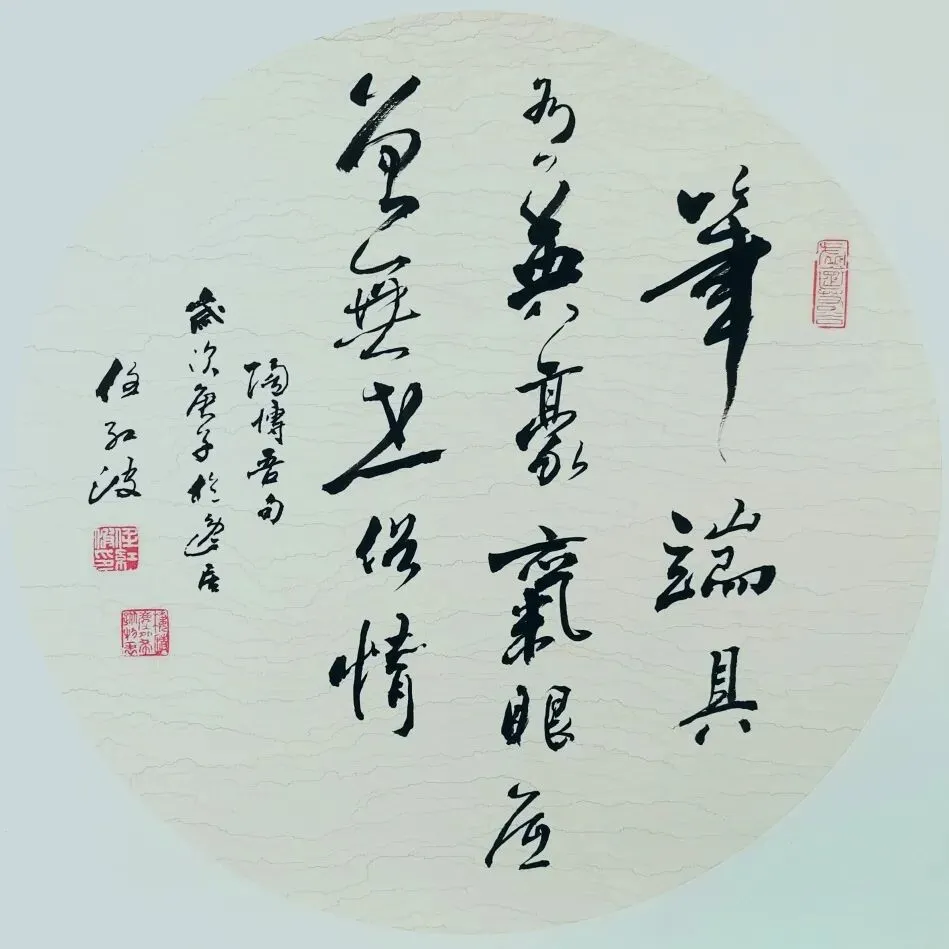 筆端具
有英豪氣眼底
曾無世俗情
陶博吾句
歲次庚子於逸居
任紅波
任紅波印